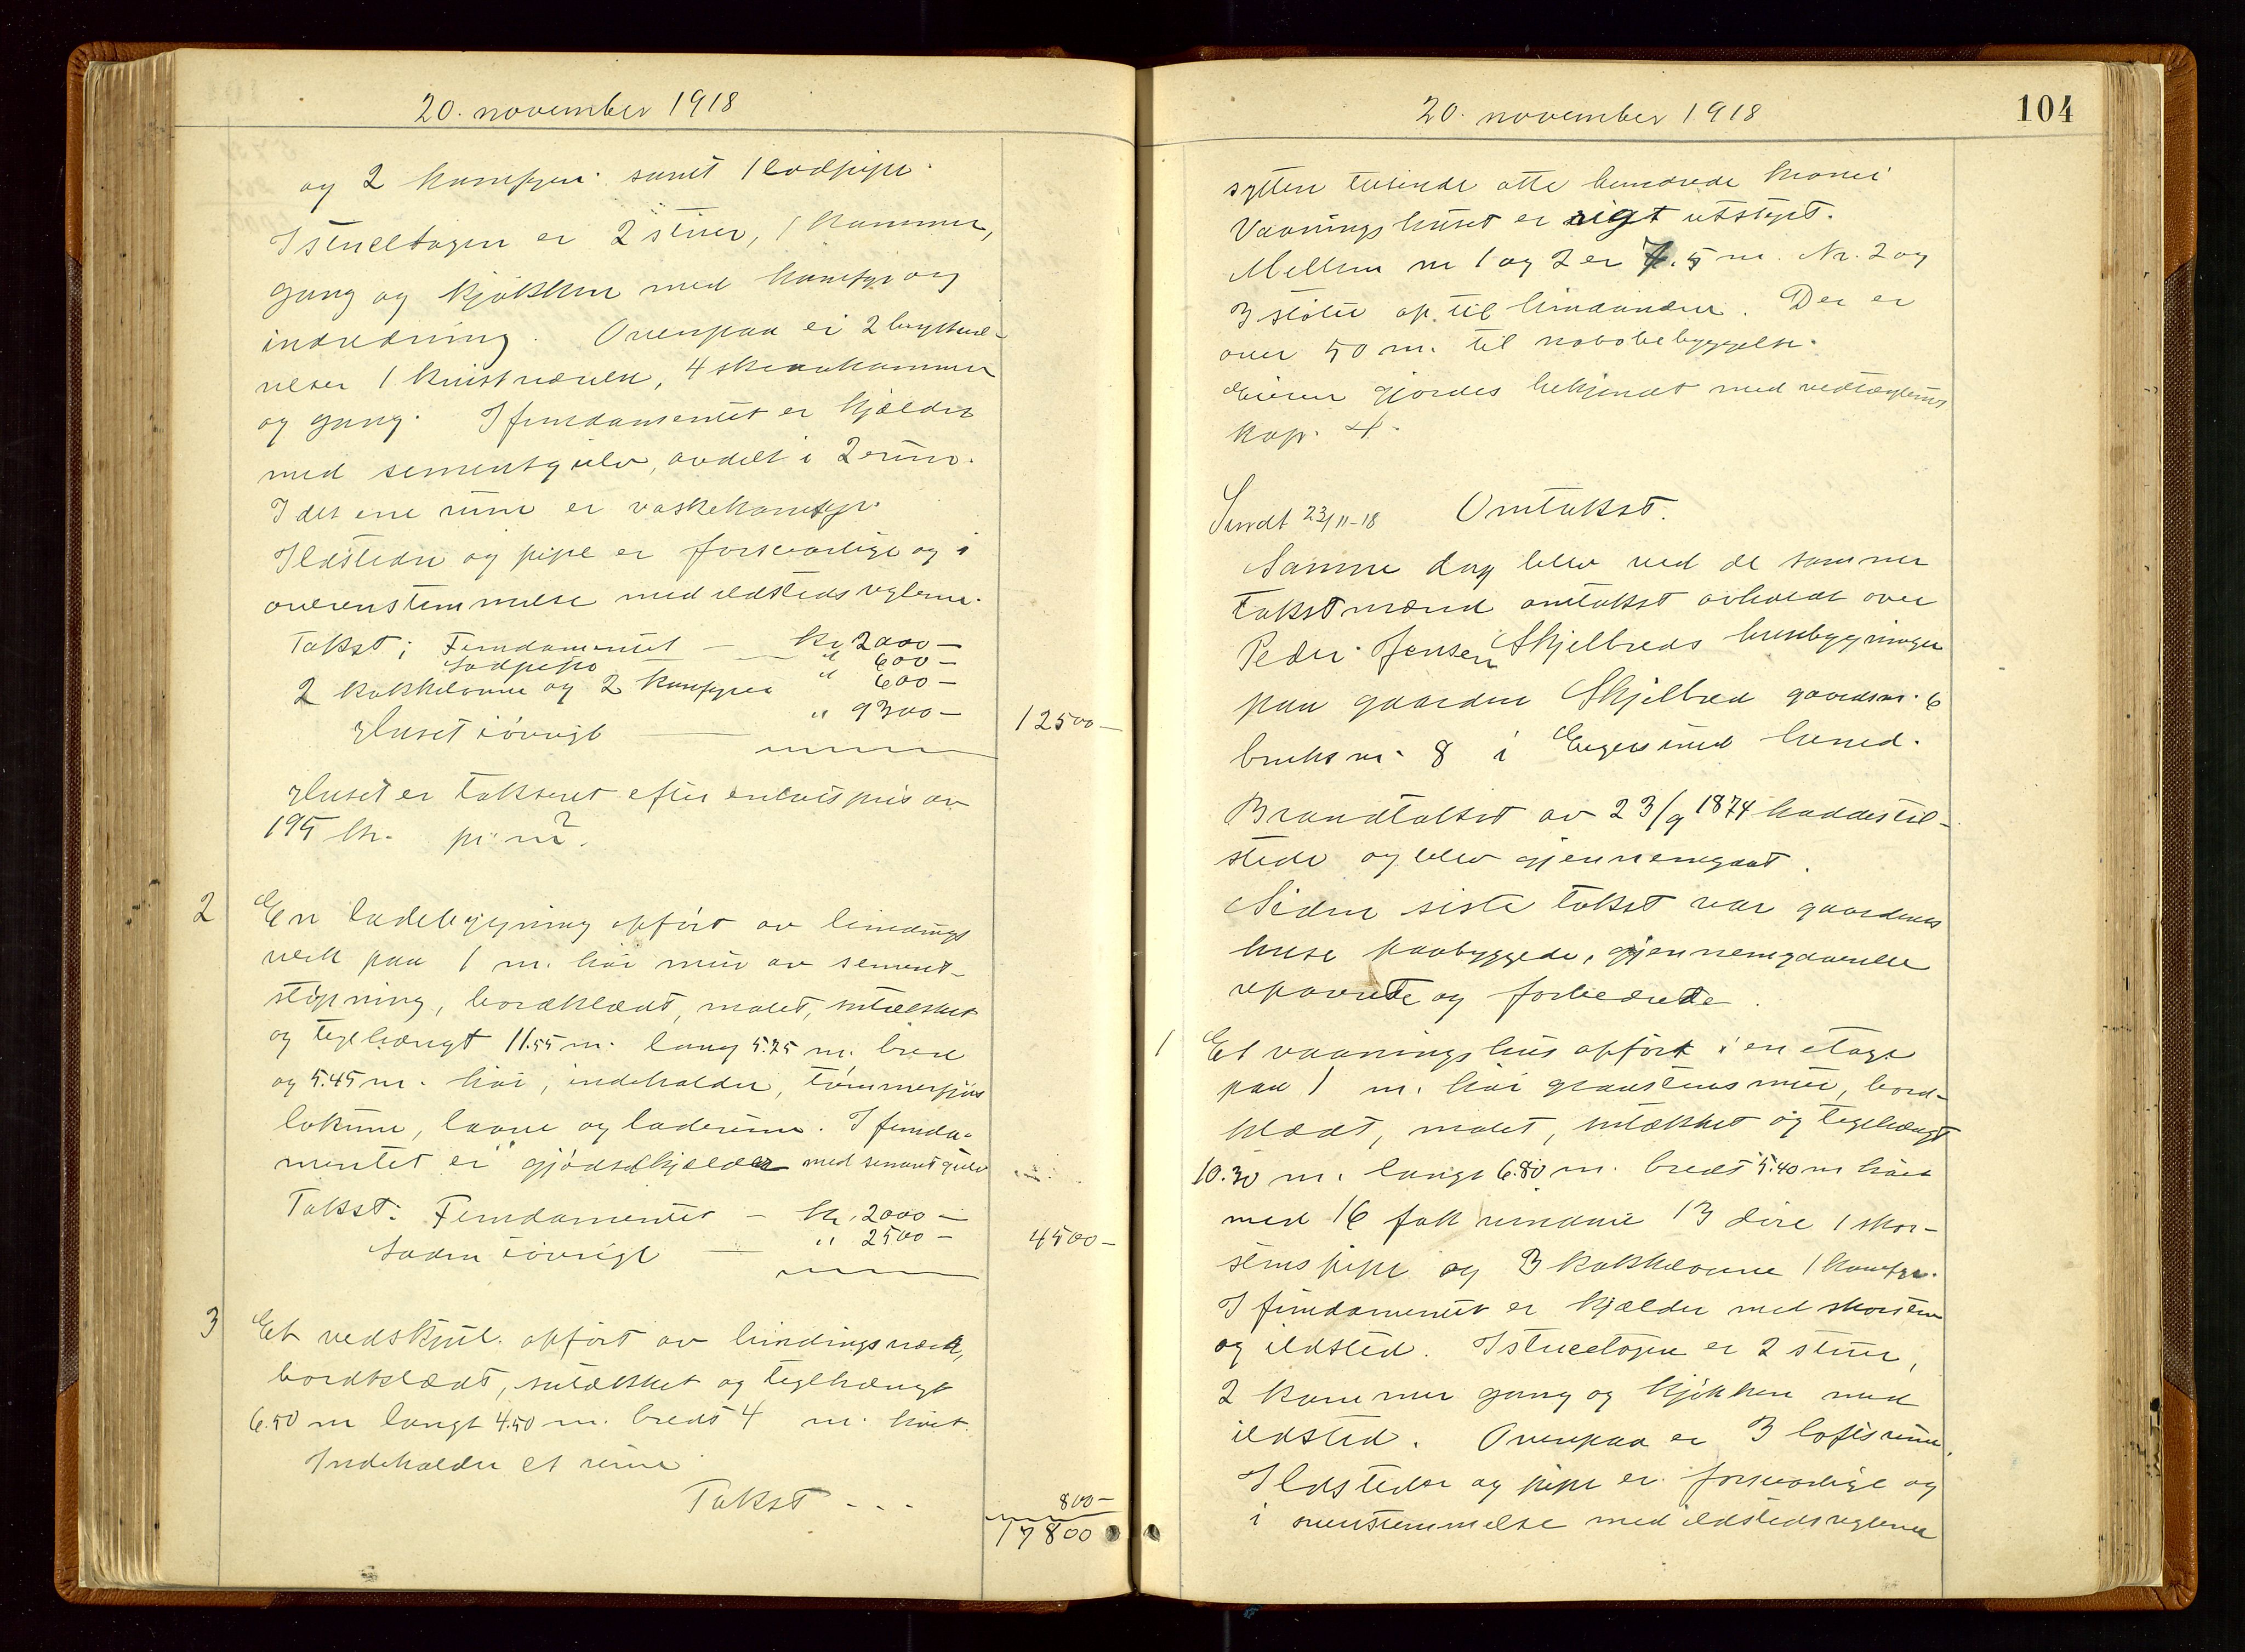 20. november 1918
og 2 komfyrer samt 1 lodpipe.
I stueetagen er 2 stuer, 1 kammer,
gang og kjøkken med komfyr og
indredning. Ovenpaa er 2
1 kvistværelse, 4 skraakammer
og gang. I fundamentet er kjælder
med sementgulv, avdelt i 2 rum.
I det ene rum er vaskekomfyr.
Ildsteder og pipe er forsvarlige og i
overenstemmelse med ildstedsreglerne.
Takst: Fundamentet — kr 2000 —
Lodpipe — " 600 —
2 kakkelovne og 2 komfyrer " 600 —
Huset iøvrigt — " 9300 — 12500 —
Huset er takseret efter enhetspris av
195 kr. pr. m².
2 En ladebygning opført av bindings
verk paa 1 m. høi mur av sement-
støpning, bordklædt, malet, sutækket
og teglhængt 11.55 m. lang 5.75 m. bred
og 5.45 m. høi, indeholder, tømmerfjøs
lokum, laave og laderum. I funda-
mentet er gjødselkjelder med sement gulv
Takst: Fundamentet — kr. 2000 —
Laden iøvrigt — " 2500 — 4500 —
3 Et vedskjul opført av bindingsværk,
bordklædt, sutækket og teglhængt
6.50 m langt 4.50 m. bredt 4 m. høit.
Indeholder et rum
Takst - - - 800 —
17800
20. november 1918 104
sytten tusinde otte hundrede kroner
Vaaningshuset er rigt utstyrt.
Mellem nr 1 og 2 er 7.5 m. Nr. 2 og
3 støter op til hinanden. Der er
over 50 m. til nabobebyggelse.
Eieren gjordes bekjendt med vedtægternes
kap. 4.
Sendt 23/11-18 Omtakst.
Samme dag blev ved de samme
takstmænd omtakst avholdt over
Peder Jensen Skjelbreds husbygninger
paa gaarden Skjelbred gaardsnr. 6
bruksnr. 8 i Eigersund herred.
Brandtakst av 23/9 1874 haddes til-
stede og blev gjennemgaat.
Siden siste takst var gaardens
huse paabyggede, gjennemgaaende
reparerte og forbedrede.
1 Et vaaningshus opført i en etage
paa 1 m. høi graastensmur, bord-
klædt, malet, sutækket og teglhængt
10.30 m. langt 6.80 m. bredt 5.40 m høit
med 16 fak vinduer 13 døre 1 skor-
stenspipe og 3 kakkelovne 1 komfyr.
I fundamentet er kjælder med skorsten
og ildsted. I stueetagen er 2 stuer,
2 kammer gang og kjøkken med
ildsted. Ovenpaa er 3 loftsrum.
Ildsteder og pipe er forsvarlige og
i overenstemmelse med ildstedsreglerne